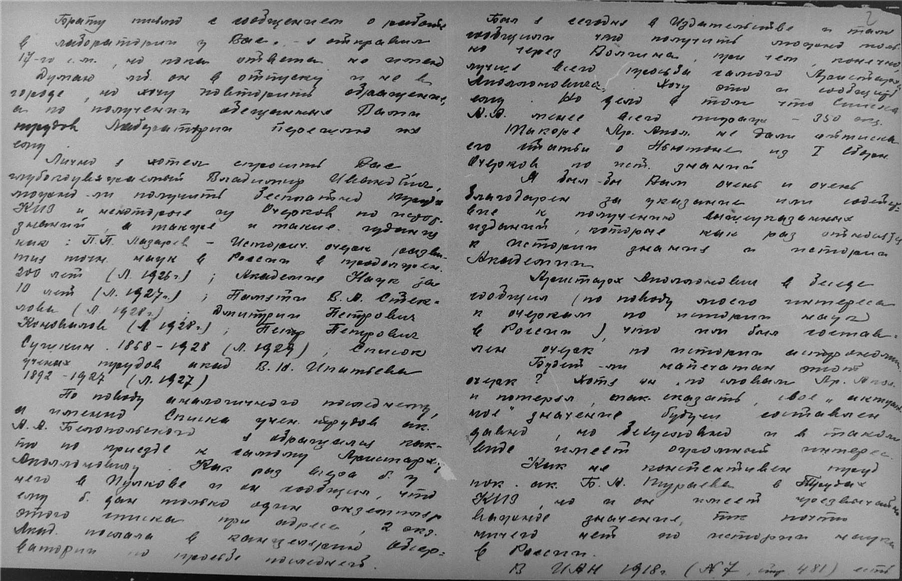 Брату письмо с сообщением о работе
в лаборатории у Вас, я отправил
17-го с.м., но пока ответа не имею
Думаю он в отпуску и не в
городе, но хочу повторить обращение,
а по получении обещанных Вами
трудов Лаборатории перешлю их
ему.
Лично я хотел спросить Вас
глубокоуважаемый Владимир Иванович,
можно-ли получить бесплатно Труды
КИЗ и некоторые из Очерков по истор.
знаний, а также и такие издания
как: П.П. Лазарев – Историч. очерк разви-
тия точн. наук в России в продолжен.
200 лет (Л. 1925г.); Академия Наук за
10 лет (Л. 1927г.); Памяти В.А. Стек-
лова (Л. 1928г.); Дмитрий Петрович
Коновалов (Л 1928г.); Петр Петрович
Сушкин. 1868-1928 (Л. 1929), Список
ученых трудов акад В.Н. Ипатьева
1892-1927 (Л. 1927)
По поводу аналогичного последнему,
а именно Списка учен. трудов ак.
А.А. Белопольского я обращался как-
то по приезде к самому Аристарху
Аполлоновичу. Как раз вчера б. у
него в Пулкове и он сообщил, что
ему б. дан только один экземпляр
этого списка при адресе, 2 экз.
Акад. послала в канцелярию обсер-
ватории по просьбе последней.
2
Был я сегодня в Издательстве и там
сообщили что получить можно толь-
ко через Волгина, при чем, конечно
лучше всего просьба самого Аристарха
Аполлоновича. Хочу это и сообщить
ему. Но дело в том что Списка
А.А. менее всего тираж – 350 экз.
Также Ар. Апол. не дали оттиска
его статьи о Ньютоне из I сборн.
Очерков по ист. знаний
Я был-бы Вам очень и очень
благодарен за указание или содейст-
вие к получению вышеуказанных
изданий, которые как раз относятся
к истории знания и истории
Академии
Аристарх Аполлонович в беседе
сообщил (по поводу моего интереса
к очеркам по истории наук
в России), что им был состав-
лен очерк по истории астрономии.
Будет-ли напечатан этот
очерк? Хотя он, по словам Ар. Апол.
и потерял, так сказать, свое "актуаль-
ное" значение будучи составлен
давно, но безусловно и в таком
виде имеет огромный интерес.
Как не конспективен труд
пок. ак. Б.А. Тураева в Трудах
КИЗ, но и он имеет чрезвычайно
важное значение, тк почти
ничего нет по истории науки
в России.
В ИАН 1918г (N7, стр 481) есть